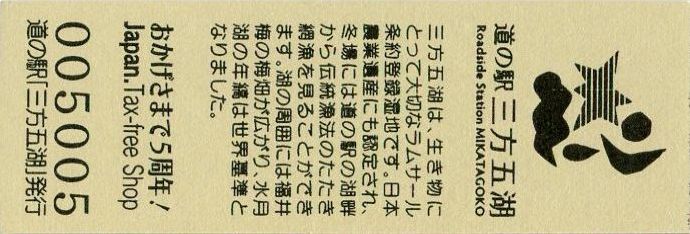 道の駅 三方五湖
Roadside Station MIKATAGOKO
三方五湖は、生き物に
とって大切なラムサール
条約登録湿地です。日本
農業遺産にも認定され、
冬場には道の駅の湖畔
から伝統漁法のたたき
網漁を見ることができ
ます。湖の周囲には福井
梅の梅畑が広がり、水月
湖の年縞は世界基準と
なりました。
おかげさまで5周年!
Japan.Tax-free Shop
005005
道の駅「三方五湖」発行